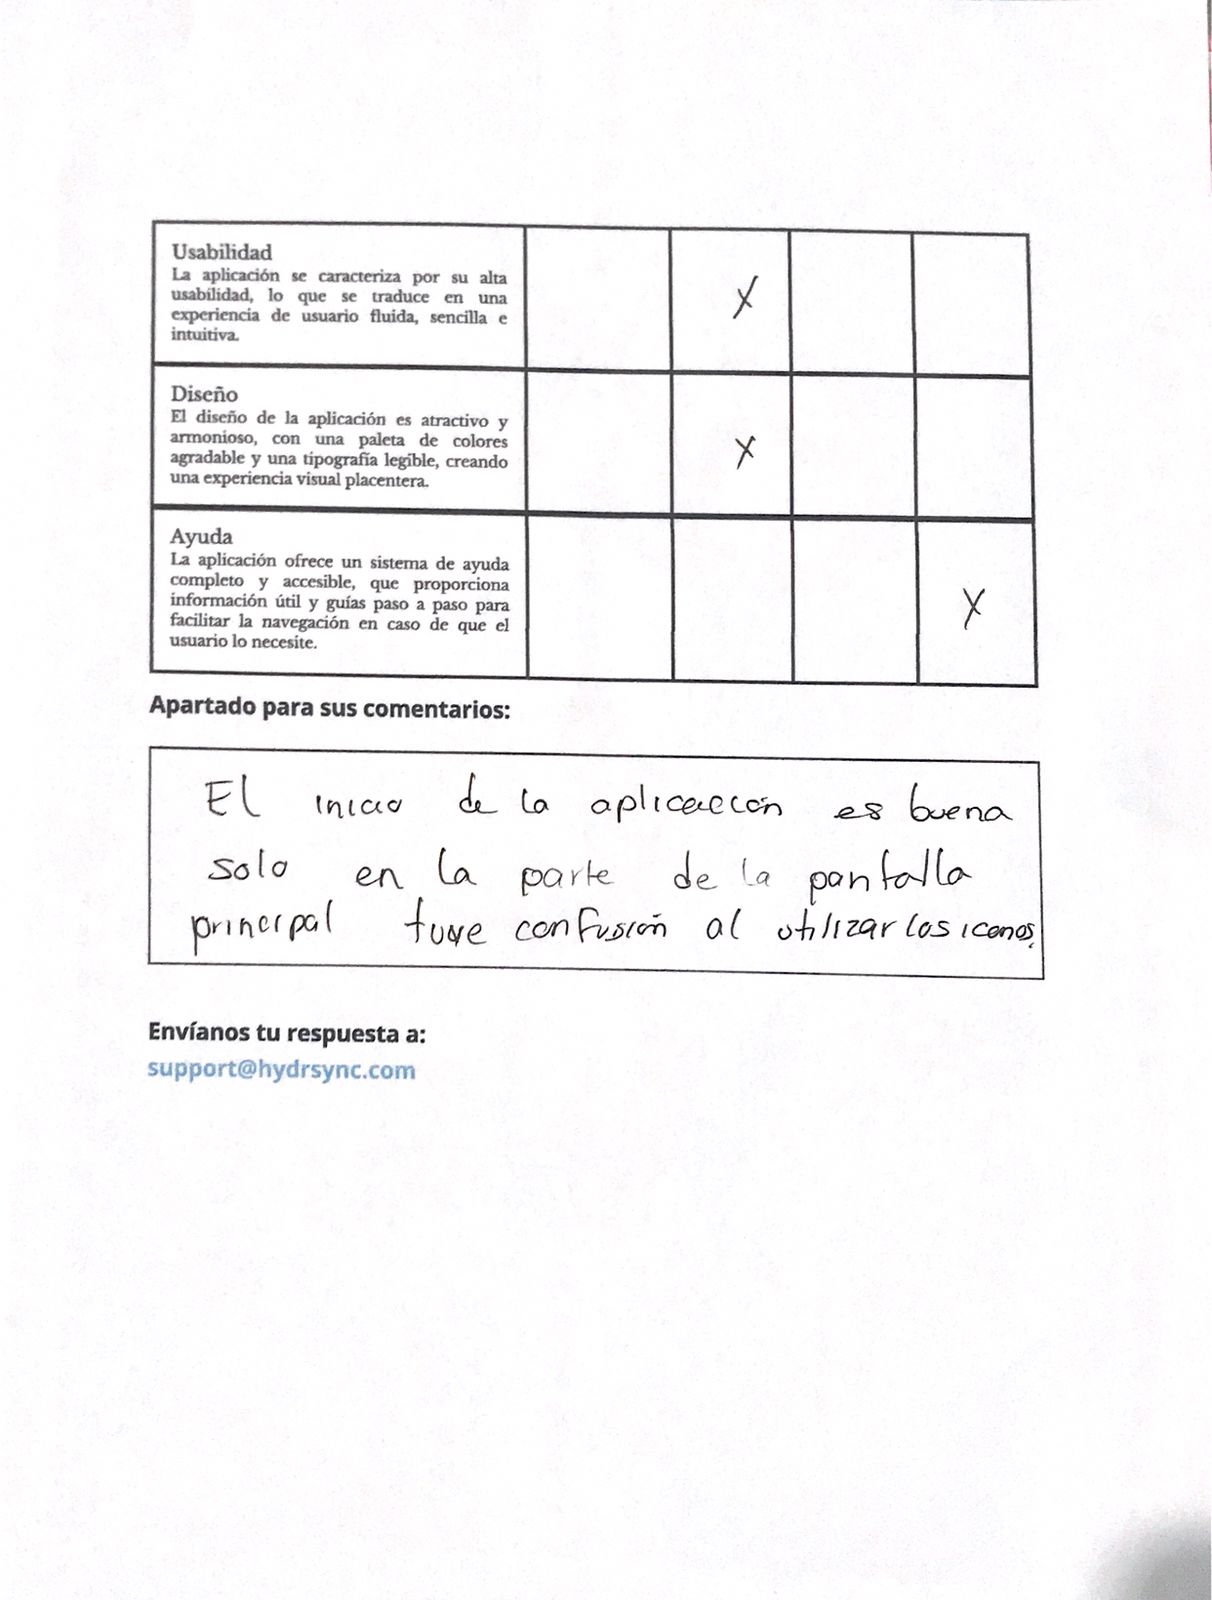 Usabilidad
La aplicación se caracteriza por su alta
usabilidad, lo que se traduce en una
experiencia de usuario fluida, sencilla e
intuitiva.
X
Diseño
El diseño de la aplicación es atractivo y
armonioso, con una paleta de colores
agradable y una tipografía legible, creando
una experiencia visual placentera.
X
Ayuda
La aplicación ofrece un sistema de ayuda
completo y accesible, que proporciona
información útil y guías paso a paso para
facilitar la navegación en caso de que el
usuario lo necesite.
X
Apartado para sus comentarios:
El inicio de la aplicacción es buena
solo en la parte de la pantalla
principal tuve confusión al utilizar los iconos.
Envíanos tu respuesta a:
support@hydrsync.com